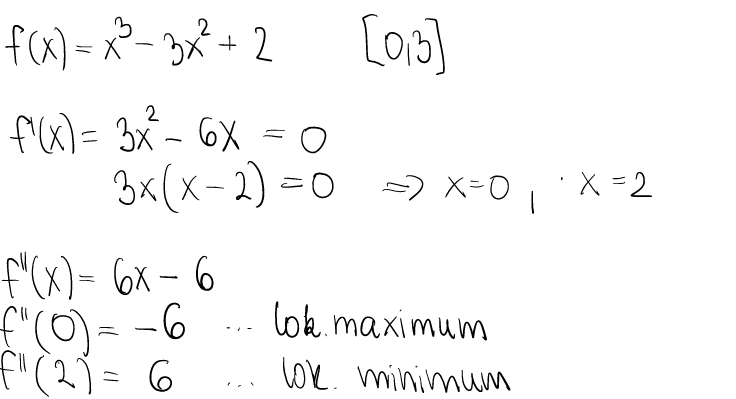 f(x) = x³ - 3x² + 2 [0,3]
f'(x) = 3x² - 6x = 0
3x(x-2) = 0 => x=0, x=2
f''(x) = 6x - 6
f''(0) = -6 ... lok. maximum
f''(2) = 6 ... lok. minimum